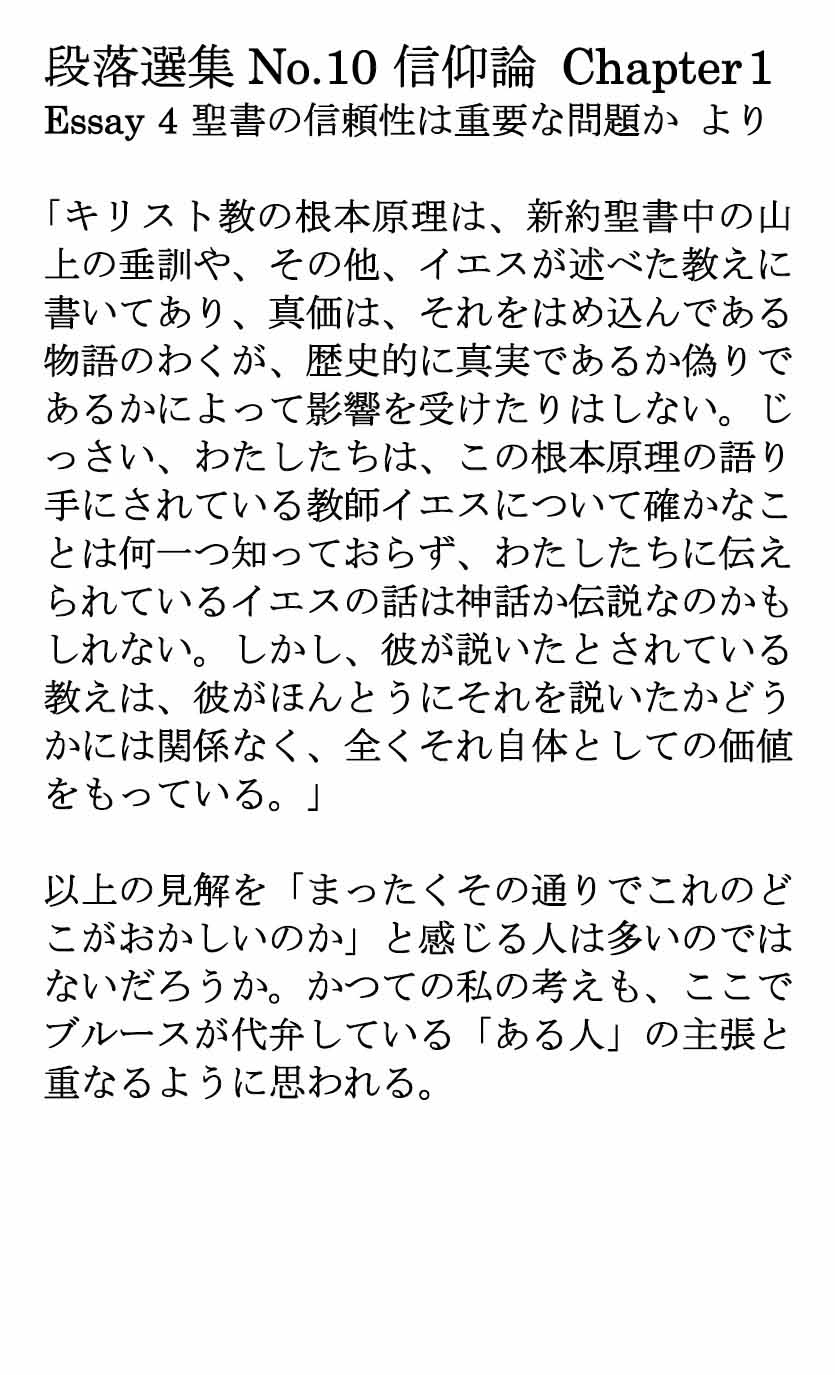 段落選集 No.10 信仰論 Chapter1
Essay 4 聖書の信頼性は重要な問題か より
「キリスト教の根本原理は、新約聖書中の山
上の垂訓や、その他、イエスが述べた教えに
書いてあり、真価は、それをはめ込んである
物語のわくが、歴史的に真実であるか偽りで
あるかによって影響を受けたりはしない。じ
っさい、わたしたちは、この根本原理の語り
手にされている教師イエスについて確かなこ
とは何一つ知っておらず、わたしたちに伝え
られているイエスの話は神話か伝説なのかも
しれない。しかし、彼が説いたとされている
教えは、彼がほんとうにそれを説いたかどう
かには関係なく、全くそれ自体としての価値
をもっている。」
以上の見解を「まったくその通りでこれのど
こがおかしいのか」と感じる人は多いのでは
ないだろうか。かつての私の考えも、ここで
ブルースが代弁している「ある人」の主張と
重なるように思われる。